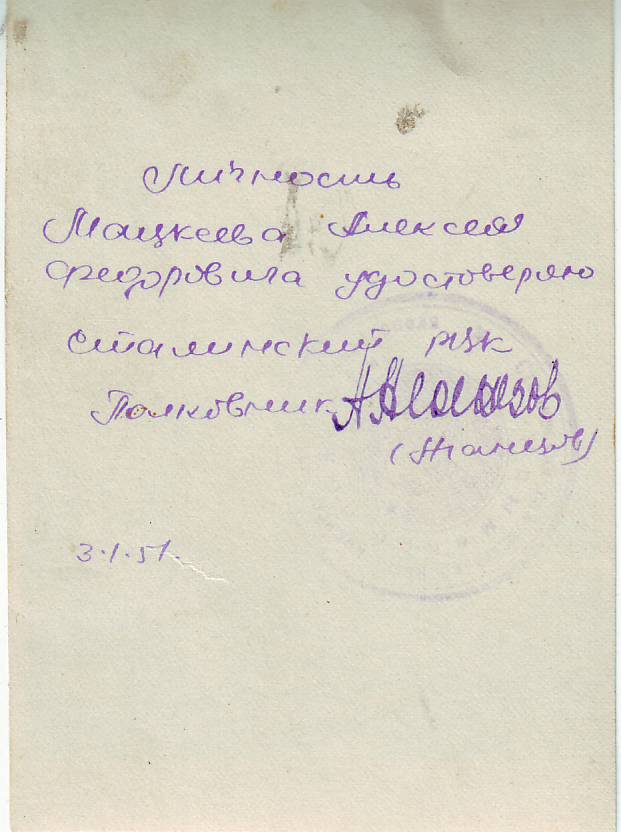 Личность
Мацкева Алексея
Федоровича удостоверяю
Сталинский РВК
Полковник
3.1.51.